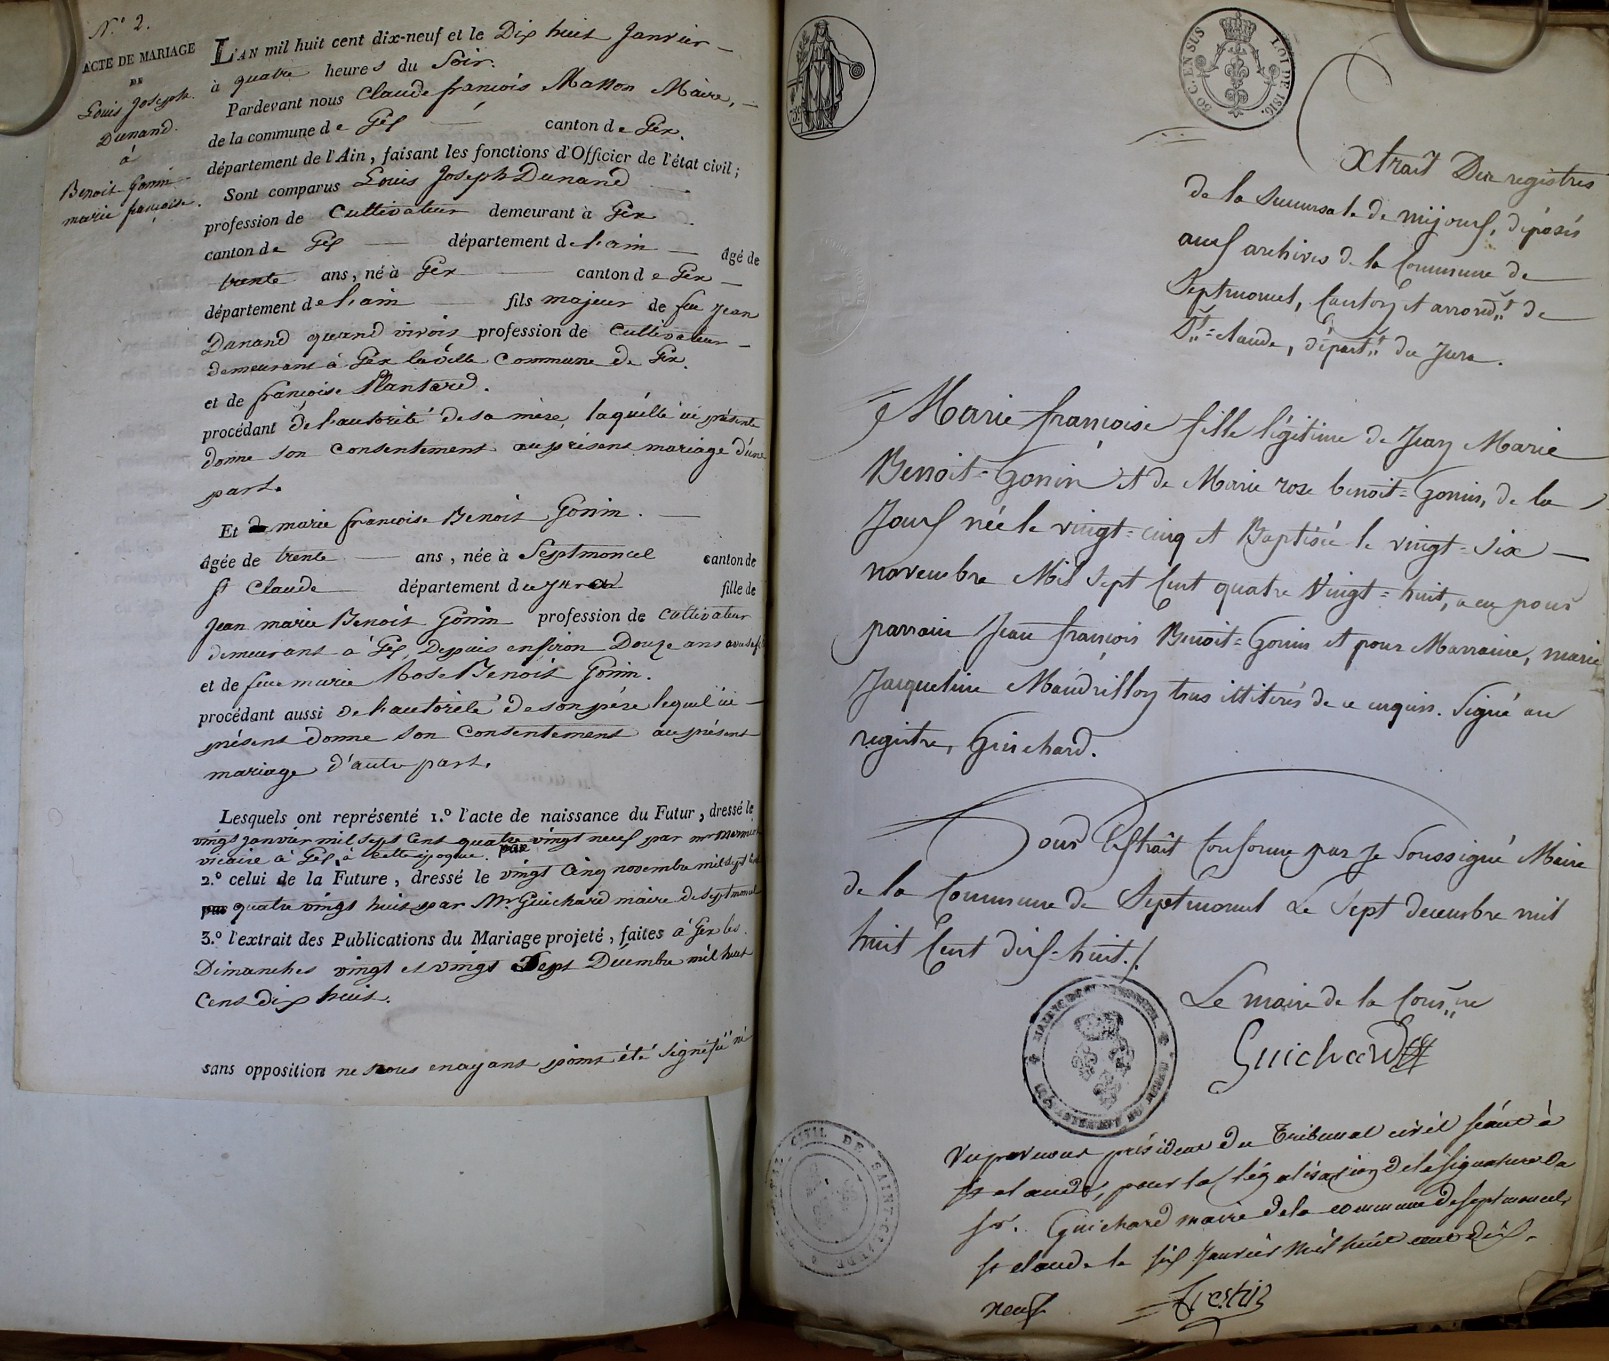 N.° 2.
ACTE DE MARIAGE
DE
Louis Joseph
Dunand.
à
Benoit Gonin
marie françoise.
L'AN mil huit cent dix-neuf et le Dix huit Janvier
à quatre heures du Soir.
Pardevant nous Claude françois Matton Maire,
de la commune de Gex canton de Gex.
département de l'Ain, faisant les fonctions d'Officier de l'état civil;
Sont comparus Louis Joseph Dunand
profession de Cultivateur demeurant à Gex
canton de Gex département de l'ain âgé de
trente ans, né à Gex canton de Gex
département de l'ain fils majeur de feu Jean
Dunand quand vivoit profession de Cultivateur
demeurant à Gex la ville Commune de Gex.
et de françoise Plantard.
procédant de l'autorité de sa mère, laquelle ici présente
donne son consentement au présent mariage d'une
part.
Et marie françoise Benoit Gonin.
âgée de trente ans, née à Septmoncel canton de
st Claude département du jura fille de
Jean marie Benoit Gonin profession de cultivateur
demeurant à Gex, Depuis environ Douze ans
et de feue marie Rose Benoit Gonin.
procédant aussi de l'autorité de son père lequel ici
présent donne son consentement au présent
mariage d'autre part.
Lesquels ont représenté 1.° l'acte de naissance du Futur, dressé le
vingt janvier mil sept cent quatre vingt neuf par mr
vicaire à Gex à cette époque. par
2.° celui de la Future, dressé le vingt Cinq novembre mil sept cent
par quatre vingt huit par Mr Guichard maire de septmoncel
3.° l'extrait des Publications du Mariage projeté, faites à Gex les
Dimanches vingt et vingt Sept Décembre mil huit
Cent dix huit.
sans opposition ne nous en ayant point été signifié ni
50 C. EN SUS
LOI DE 1816.
Extrait Des registres
de la Succursale de mijoux, déposés
aux archives de la Commune de
Septmoncel, Canton et arrond.t de
S.t=claude, départ.t du Jura.
Marie françoise fille légitime de Jean Marie
Benoit=Gonin et de Marie rose benoit=Gonin, de la
Joux née le vingt=cinq et Baptisée le vingt=six
novembre Mil Sept Cent quatre Vingt=huit, a eu pour
parrain Jean françois Benoit=Gonin et pour Marraine, marie
Jacqueline Mandrillon tous illitérés de ce enquis. Signé au
registre, Guichard.
Pour Extrait Conforme par Je Soussigné Maire
de la Commune de Septmoncel Le Sept decembre mil
huit Cent dix=huit./.
Le maire de la Com.ne
Guichard
Vu par nous président du Tribunal civil séant à
st claude, pour la légalisation de la signature du
sr. Guichard maire de la commune de septmoncel,
st claude le six Janvier mil huit cent dix-
neuf
TRIBUNAL CIVIL DE SAINT-CLAUDE